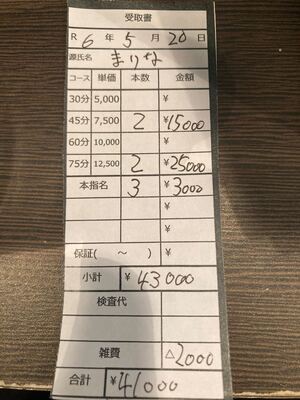 受取書
R 6 年 5 月 20 日
源氏名 まりな
コース 単価 本数 金額
30分 5,000 ¥
45分 7,500 2 ¥15000
60分 10,000 ¥
75分 12,500 2 ¥25000
本指名 3 ¥3000
¥
¥
保証( ～ ) ¥
小計 ¥43000
検査代
雑費 △2000
合計 ¥41000